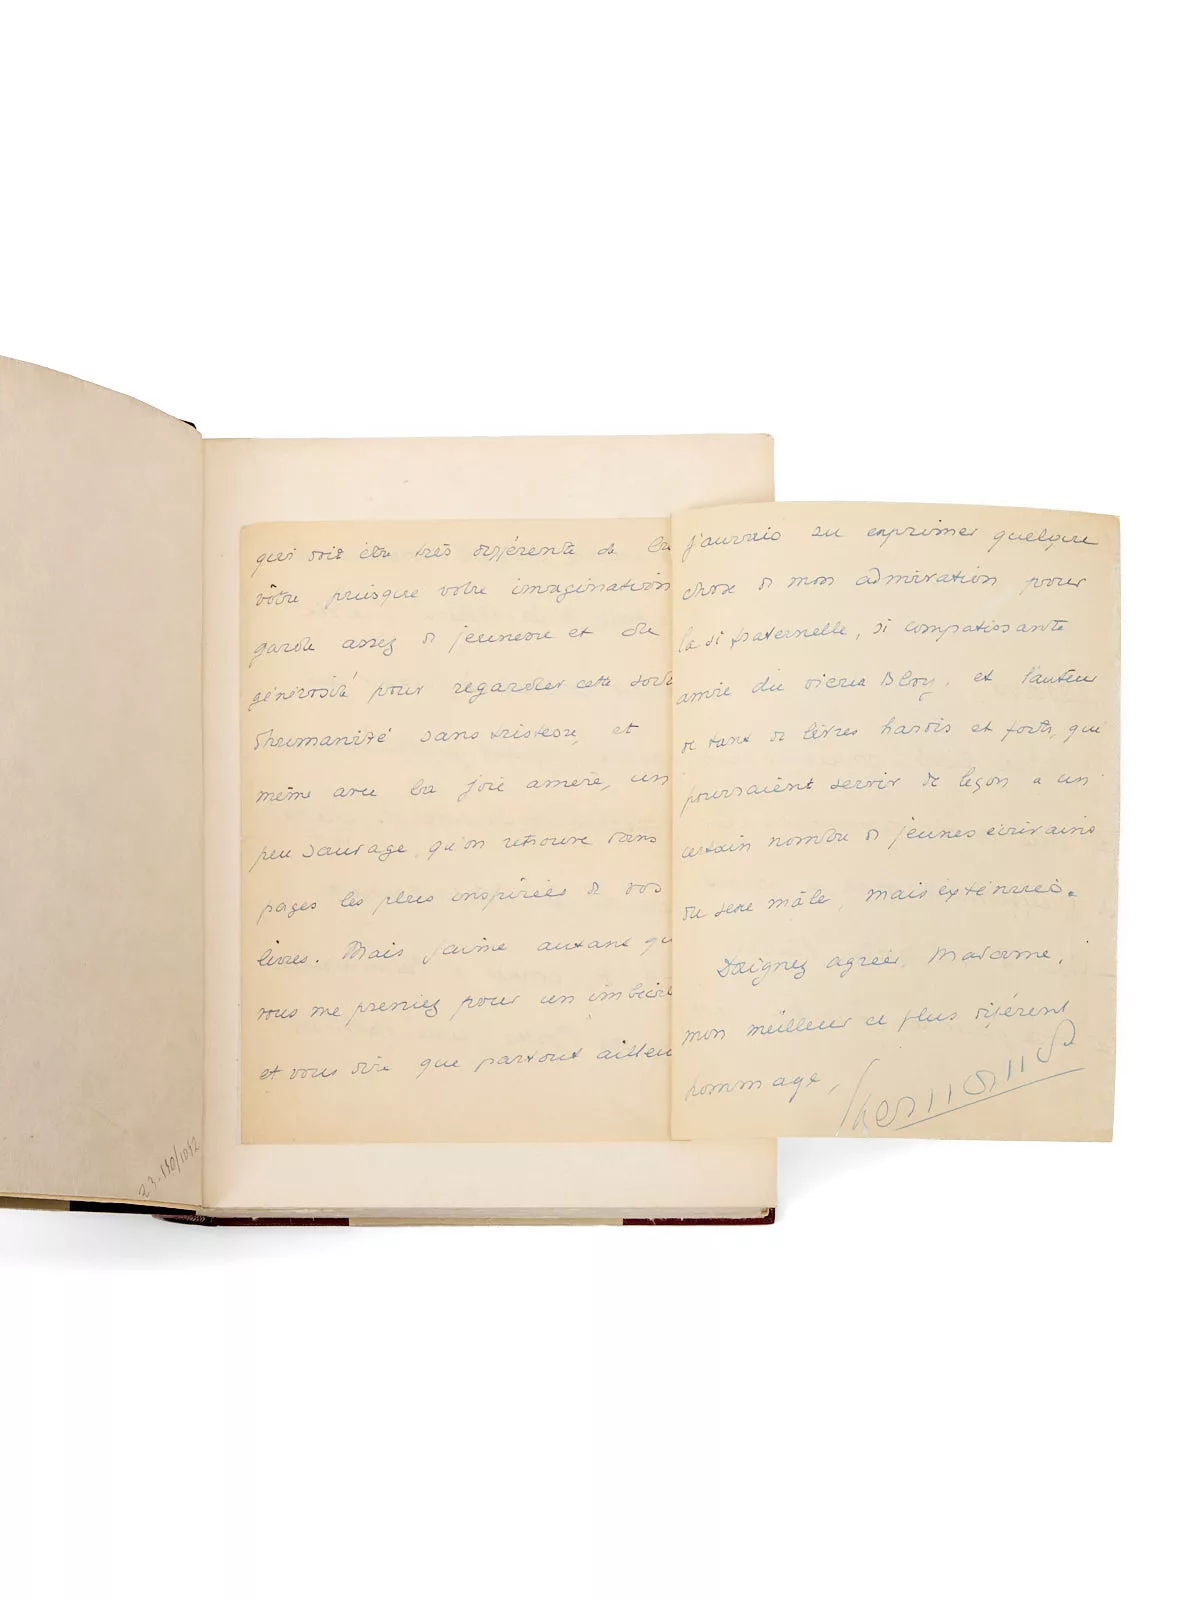 qui doit être très différente de la
vôtre puisque votre imagination
garde assez de jeunesse et de
générosité pour regarder cette sorte
d'humanité sans tristesse, et
même avec la joie amère, un
peu sauvage, qu'on retrouve dans
pages les plus inspirées de vos
livres. Mais j'aime autant qu
vous me preniez pour un imbécile
et vous dire que partout ailleu
j'aurais su exprimer quelque
chose de mon admiration pour
la si fraternelle, si compatissante
amie du vieux Bloy, et l'auteur
de tant de livres hardis et forts, qui
pourraient servir de leçon a un
certain nombre de jeunes écrivains
du sexe mâle, mais exténués.
Daignez agréer, Madame,
mon meilleur et plus déférent
hommage,
23-150/1052